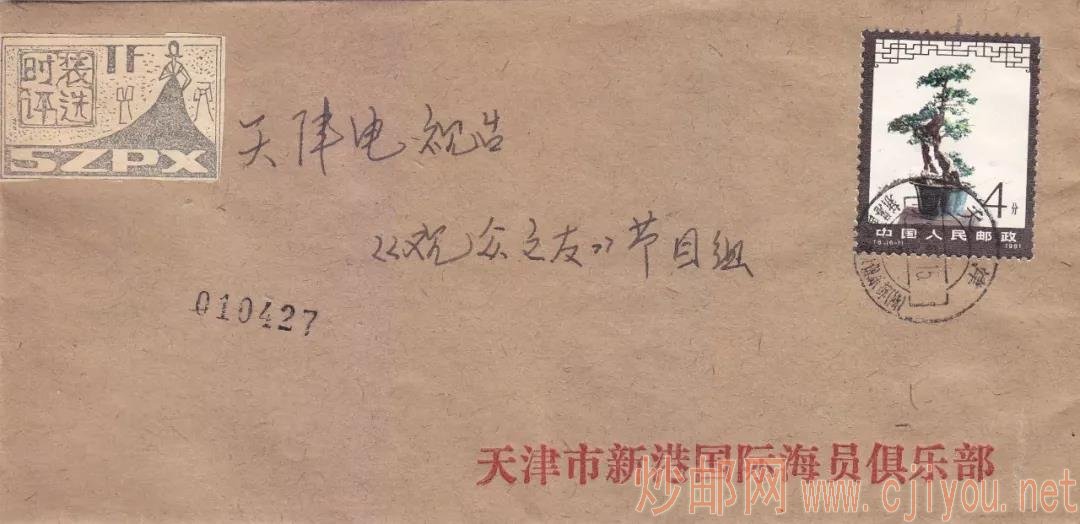 时装
评选
SZPX
天津电视台
《观众之友》节目组
4分
中国人民邮政
1981
010427
天津市新港国际海员俱乐部
炒邮网 www.cjiyou.net